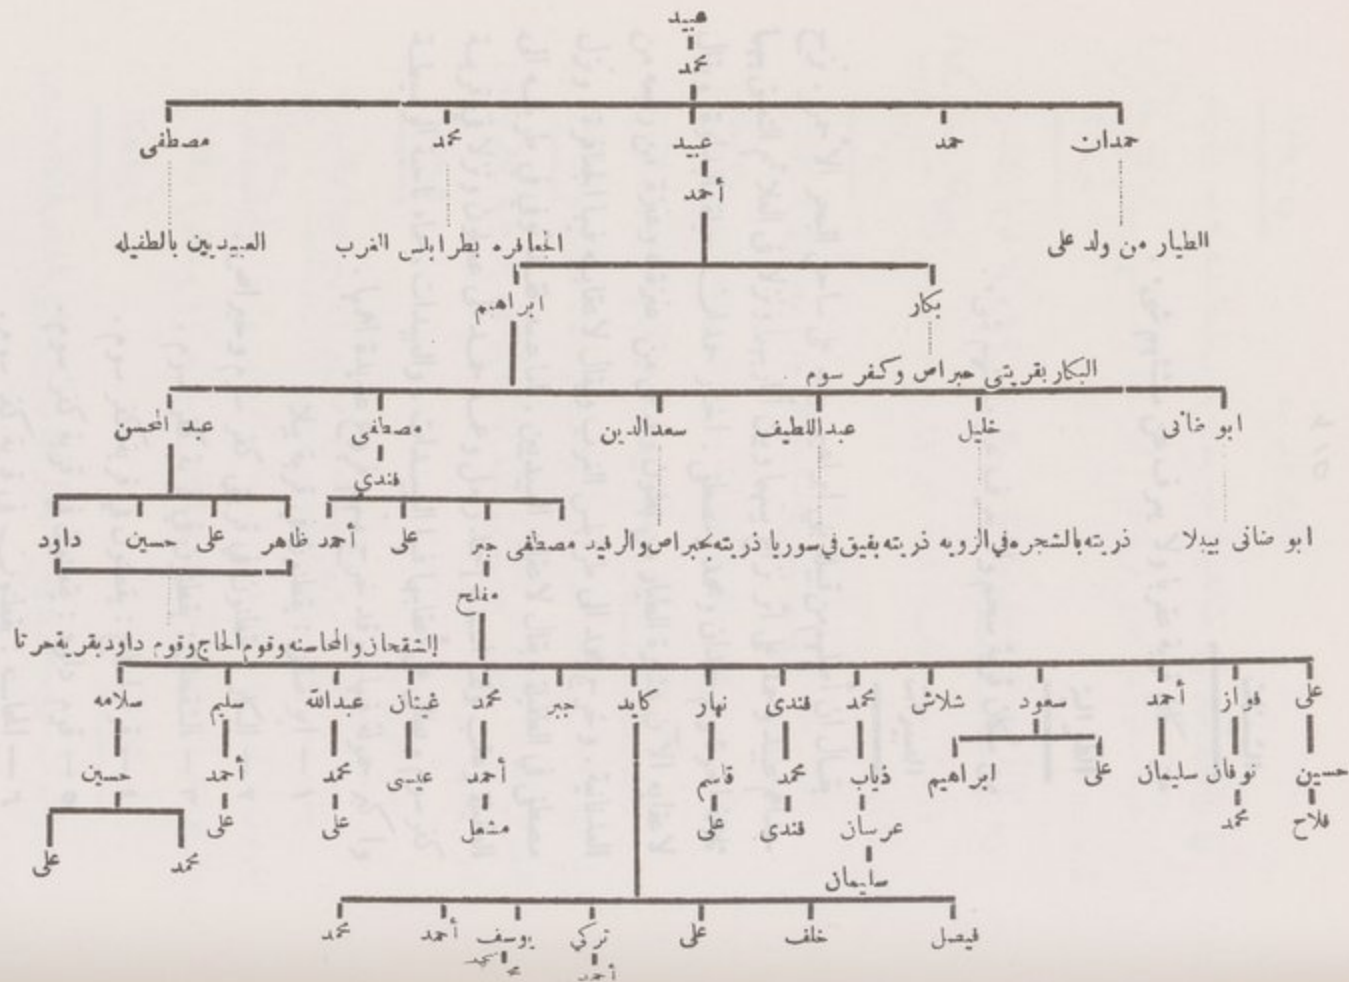 عبيد
محمد
حمدان حمد عبيد محمد مصطفى
أحمد
الطيار من ولد على الجعافره بطرابلس الغرب العبيديين بالطفيله
بكار ابراهيم
البكار بقريتي حبراص وكفر سوم
ابو ضانى خليل عبداللطيف سعدالدين مصطفى عبد المحسن
فندي
ابو ضانى بيبلا ذريته بالشجره في الرويه ذريته بفيق في سوريا ذريته بحبراص والرفيد مصطفى جبر على أحمد ظاهر على حسين داود
مفلح
الشقحاز والمحاسنه وقوم الحاج وقوم داود بقرية حرتا
على فواز أحمد سعود شلاش محمد فندى نهار كايد جبر محمد غبنان عبدالله سليم سلامه
حسين نوفان سليمان على ابراهيم ذياب محمد قاسم أحمد عيسى محمد أحمد حسين
فلاح محمد عرسان فندى على مشعل على على
محمد على
سليمان
فيصل خلف على تركي يوسف أحمد محمد
أحمد محمد